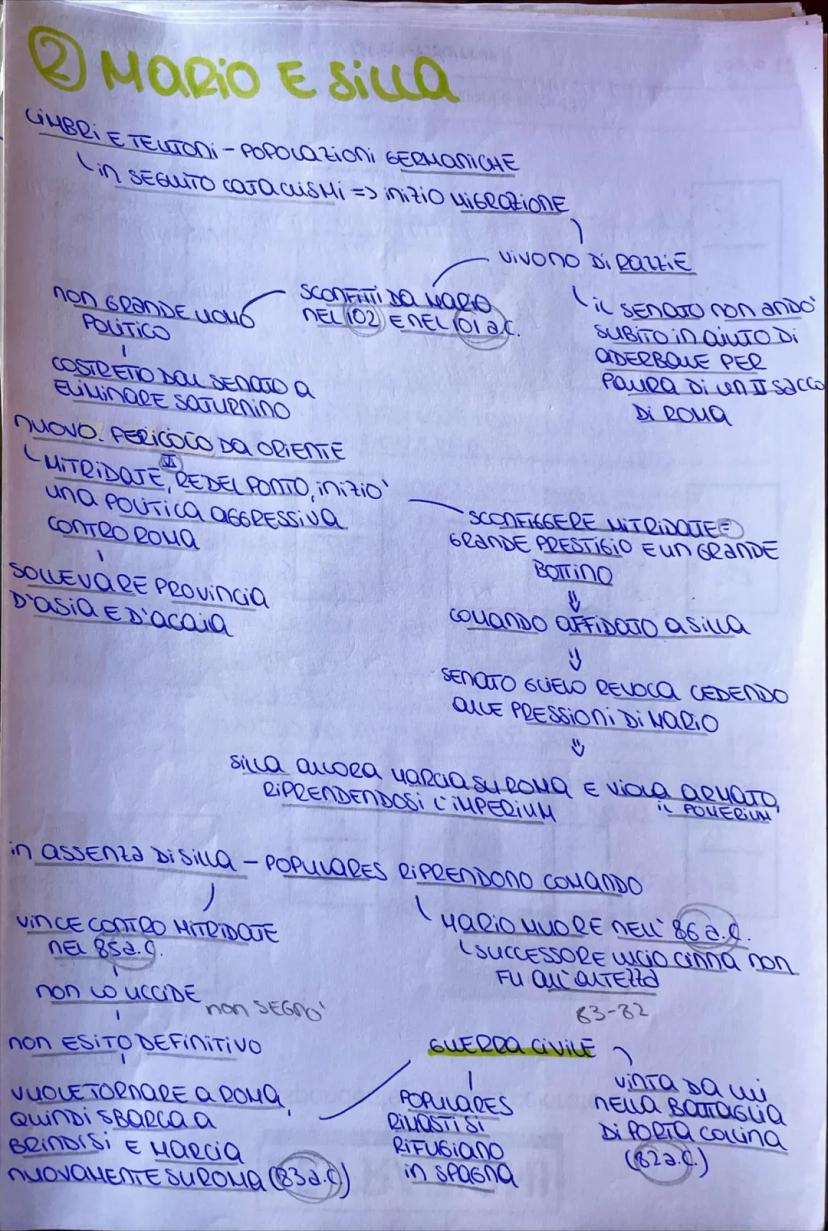 2 MARIO E SILLA
CIMBRI E TEUTONI - POPOLAZIONI GERMANICHE
IN SEGUITO CATACLISMI => INIZIO MIGRAZIONE
VIVONO DI RAZZIE
SCONFITTI DA MARIO
NEL 102 E NEL 101 a.C.
NON GRANDE UOMO
POLITICO
COSTRETO DAL SENATO A
ELIMINARE SATURNINO
IL SENATO NON ANDÒ
SUBITO IN AIUTO DI
ADERBALE PER
PAURA DI UN II SACCO
DI ROMA
NUOVO PERICOLO DA ORIENTE
MITRIDATE, RE DEL PONTO, INIZIO'
UNA POLITICA AGGRESSIVA
CONTRO ROMA
SOLLEVARE PROVINCIA
D'ASIA E D'ACAIA
SCONFIGGERE MITRIDATE =
GRANDE PRESTIGIO E UN GRANDE
BOTTINO
COMANDO AFFIDATO A SILLA
SENATO GLIELO REVOCA CEDENDO
ALLE PRESSIONI DI MARIO
SILLA ALLORA MARCIA SU ROMA E VIOLA ARMATO,
IL POMERIUM
RIPRENDENDOSI L'IMPERIUM
IN ASSENZA DI SILLA - POPULARES RIPRENDONO COMANDO
VINCE CONTRO MITRIDATE
NEL 85 a.C.
NON LO UCCIDE
NON SEGNO'
NON ESITO DEFINITIVO
VUOLE TORNARE A ROMA,
QUINDI SBARCA A
BRINDISI E MARCIA
NUOVAMENTE SU ROMA (83 a.C)
MARIO MUORE NELL' 86 a.C.
SUCCESSORE LUCIO CINNA NON
FU ALL'ALTEZZA
83-82
GUERRA CIVILE
POPULARES
RIMASTI SI
RIFUGIANO
IN SPAGNA
VINTA DA LUI
NELLA BATTAGLIA
DI PORTA COLLINA
(82 a.C.)